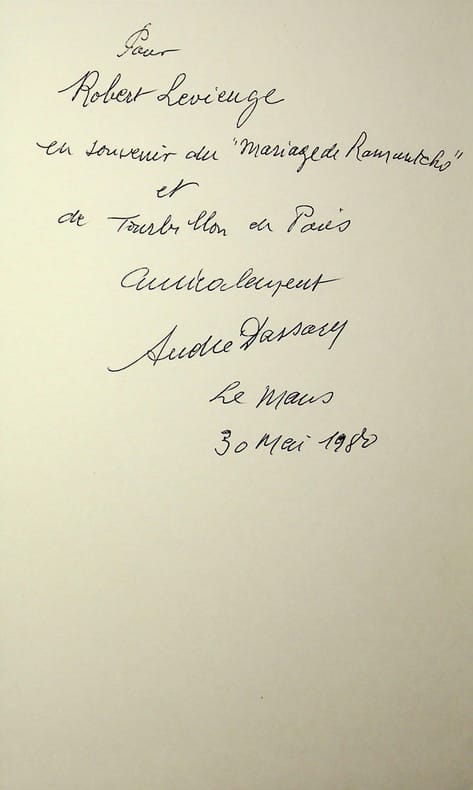 Pour
Robert Levienge
en souvenir du "Mariage de Ramuntcho"
et
de Tourbillon de Paris
amicalement
André Dassary
Le Mans
30 Mai 1980